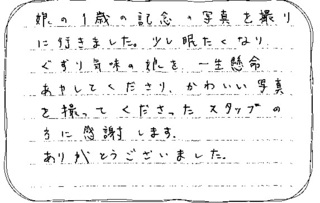 娘の1歳の記念の写真を撮り
に行きました。少し眠たくなり
ぐずり気味の娘を一生懸命
あやしてくださり、かわいい写真
を撮ってくださったスタッフの
方に感謝します。
ありがとうございました。